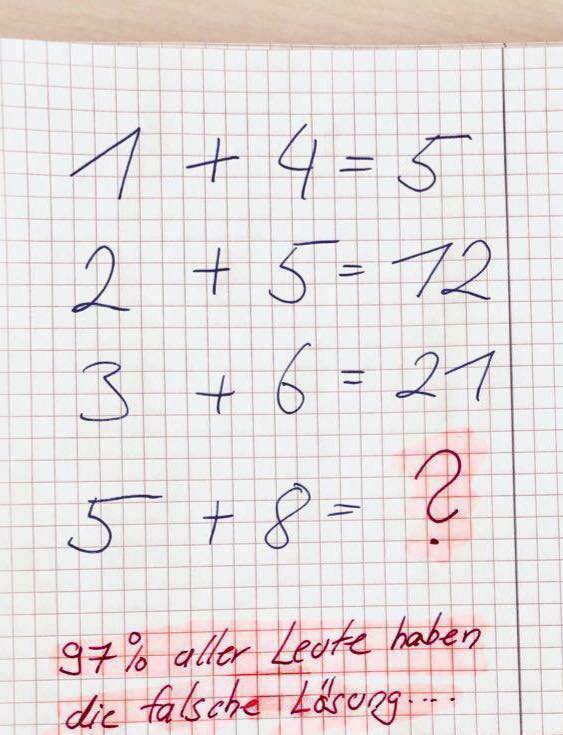 1 + 4 = 5
2 + 5 = 12
3 + 6 = 21
5 + 8 = ?
97% aller Leute haben
die falsche Lösung....